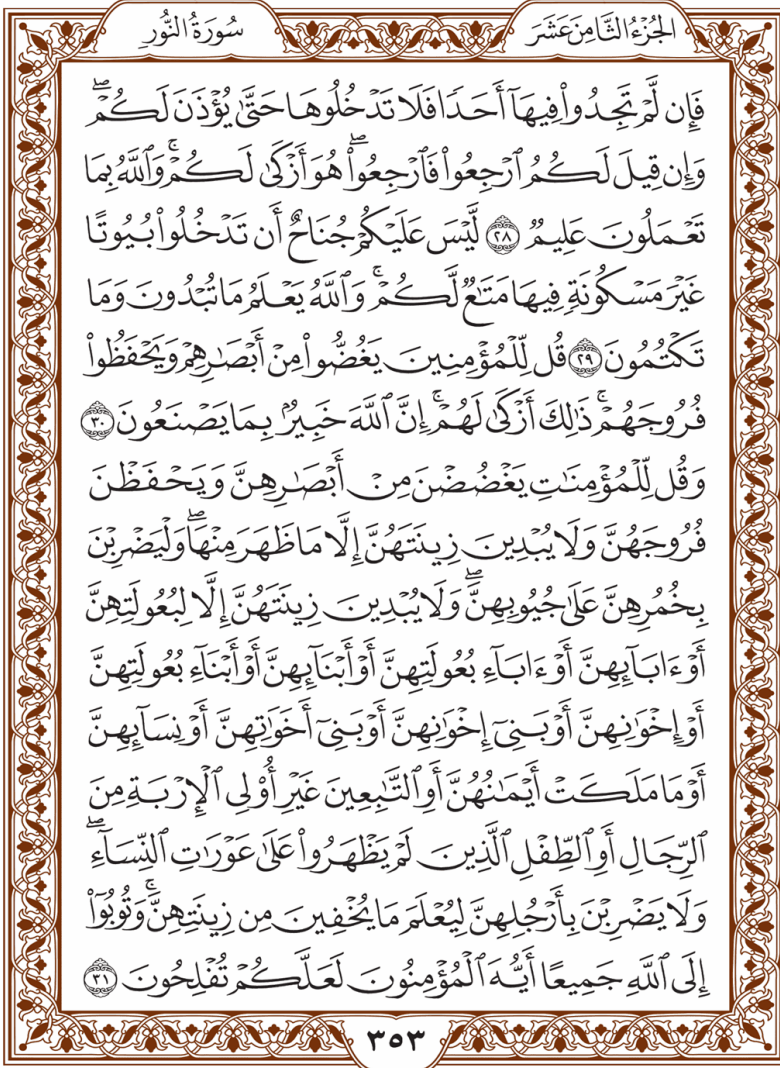 الجُزْءُ الثَّامِنَ عَشَرَ
سُورَةُ النُّورِ
فَإِن لَّمْ تَجِدُوا۟ فِيهَآ أَحَدًا فَلَا تَدْخُلُوهَا حَتَّىٰ يُؤْذَنَ لَكُمْ ۖ
وَإِن قِيلَ لَكُمُ ٱرْجِعُوا۟ فَٱرْجِعُوا۟ ۖ هُوَ أَزْكَىٰ لَكُمْ ۚ وَٱللَّهُ بِمَا
تَعْمَلُونَ عَلِيمٌ ٢٨ لَّيْسَ عَلَيْكُمْ جُنَاحٌ أَن تَدْخُلُوا۟ بُيُوتًا
غَيْرَ مَسْكُونَةٍ فِيهَا مَتَـٰعٌ لَّكُمْ ۚ وَٱللَّهُ يَعْلَمُ مَا تُبْدُونَ وَمَا
تَكْتُمُونَ ٢٩ قُل لِّلْمُؤْمِنِينَ يَغُضُّوا۟ مِنْ أَبْصَـٰرِهِمْ وَيَحْفَظُوا۟
فُرُوجَهُمْ ۚ ذَٰلِكَ أَزْكَىٰ لَهُمْ ۗ إِنَّ ٱللَّهَ خَبِيرٌۢ بِمَا يَصْنَعُونَ ٣٠
وَقُل لِّلْمُؤْمِنَـٰتِ يَغْضُضْنَ مِنْ أَبْصَـٰرِهِنَّ وَيَحْفَظْنَ
فُرُوجَهُنَّ وَلَا يُبْدِينَ زِينَتَهُنَّ إِلَّا مَا ظَهَرَ مِنْهَا ۖ وَلْيَضْرِبْنَ
بِخُمُرِهِنَّ عَلَىٰ جُيُوبِهِنَّ ۖ وَلَا يُبْدِينَ زِينَتَهُنَّ إِلَّا لِبُعُولَتِهِنَّ
أَوْ ءَابَآئِهِنَّ أَوْ ءَابَآءِ بُعُولَتِهِنَّ أَوْ أَبْنَآئِهِنَّ أَوْ أَبْنَآءِ بُعُولَتِهِنَّ
أَوْ إِخْوَٰنِهِنَّ أَوْ بَنِىٓ إِخْوَٰنِهِنَّ أَوْ بَنِىٓ أَخَوَٰتِهِنَّ أَوْ نِسَآئِهِنَّ
أَوْ مَا مَلَكَتْ أَيْمَـٰنُهُنَّ أَوِ ٱلتَّـٰبِعِينَ غَيْرِ أُو۟لِى ٱلْإِرْبَةِ مِنَ
ٱلرِّجَالِ أَوِ ٱلطِّفْلِ ٱلَّذِينَ لَمْ يَظْهَرُوا۟ عَلَىٰ عَوْرَٰتِ ٱلنِّسَآءِ ۖ
وَلَا يَضْرِبْنَ بِأَرْجُلِهِنَّ لِيُعْلَمَ مَا يُخْفِينَ مِن زِينَتِهِنَّ ۚ وَتُوبُوٓا۟
إِلَى ٱللَّهِ جَمِيعًا أَيُّهَ ٱلْمُؤْمِنُونَ لَعَلَّكُمْ تُفْلِحُونَ ٣١
٣٥٣